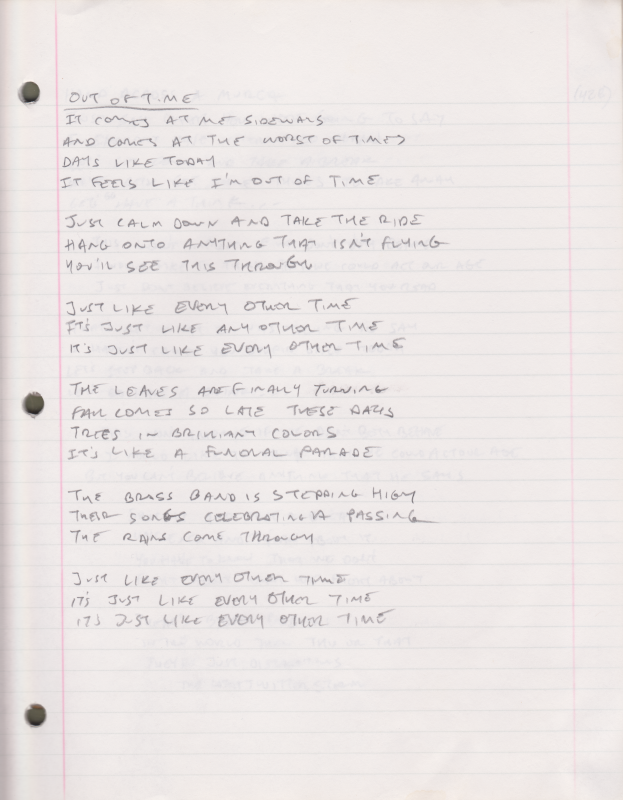 OUT OF TIME
IT COMES AT ME SIDEWAYS
AND COMES AT THE WORST OF TIMES
DAYS LIKE TODAY
IT FEELS LIKE I'M OUT OF TIME
JUST CALM DOWN AND TAKE THE RIDE
HANG ONTO ANYTHING THAT ISN'T FLYING
YOU'LL SEE THIS THROUGH
JUST LIKE EVERY OTHER TIME
IT'S JUST LIKE ANY OTHER TIME
IT'S JUST LIKE EVERY OTHER TIME
THE LEAVES ARE FINALLY TURNING
FALL COMES SO LATE THESE DAYS
TREES IN BRILLIANT COLORS
IT'S LIKE A FUNERAL PARADE
THE BRASS BAND IS STEPPING HIGH
THEIR SONGS CELEBRATING A PASSING
THE RAINS COME THROUGH
JUST LIKE EVERY OTHER TIME
IT'S JUST LIKE EVERY OTHER TIME
IT'S JUST LIKE EVERY OTHER TIME